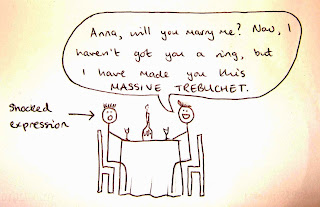 Anna, will you marry me? Now, I
haven't got you a ring, but
I have made you this
MASSIVE TREBUCHET.
Shocked
expression